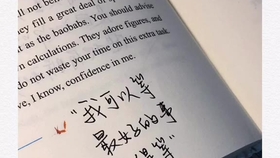 ill not be
hey fill a great deal of s
t as the baobabs. You should advise
n calculations. They adore figures, and
do not waste your time on this extra task
e, I know, confidence in me.
“我可以等
最好的事